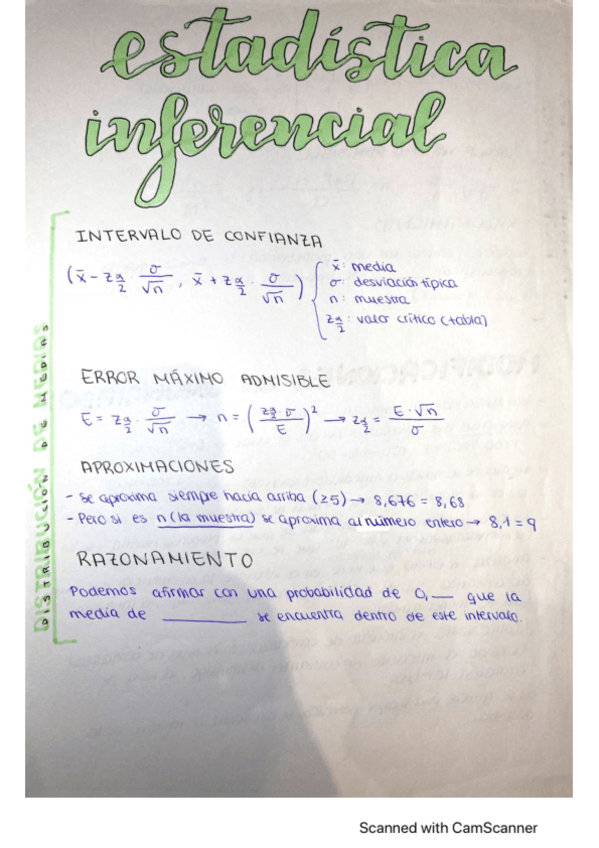 estadística
inferencial
DISTRIBUCIÓN DE MEDIAS
INTERVALO DE CONFIANZA
(x̄ - zα/2 · σ/√n , x̄ + zα/2 · σ/√n)
x̄: media
σ: desviación típica
n: muestra
zα/2: valor crítico (tabla)
ERROR MÁXIMO ADMISIBLE
E = zα/2 · σ/√n → n = (zα/2 · σ / E)² → zα/2 = E · √n / σ
APROXIMACIONES
- Se aproxima siempre hacia arriba (≥5) → 8,676 = 8,68
- Pero si es n (la muestra) se aproxima al número entero → 8,1 = 9
RAZONAMIENTO
Podemos afirmar con una probabilidad de 0,__ que la
media de ________ se encuentra dentro de este intervalo.
Scanned with CamScanner